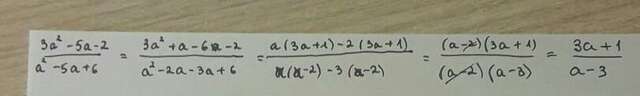 (3a² -5a-2)/(a² -5a+6) = (3a² +a-6a-2)/(a² -2a-3a+6) = (a(3a+1)-2(3a+1))/(a(a-2)-3(a-2)) = ((a-2)(3a+1))/((a-2)(a-3)) = (3a+1)/(a-3)